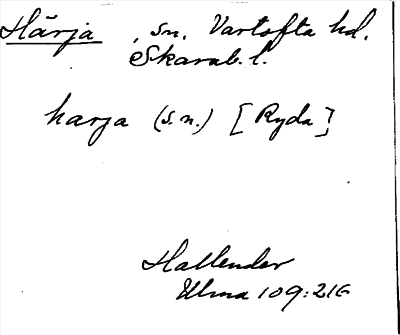 Härja, sn. Vartofta hd.
Skarab. l.
harja (s.n.) [Ryda]
Hallender
Ulma 109:216